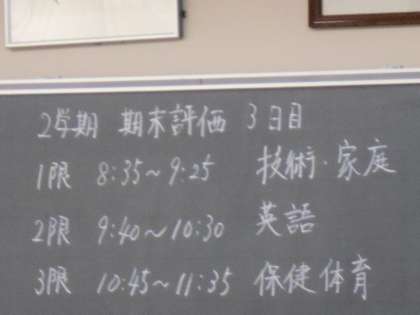 2学期 期末評価 3日目
1限 8:35~9:25 技術・家庭
2限 9:40~10:30 英語
3限 10:45~11:35 保健体育